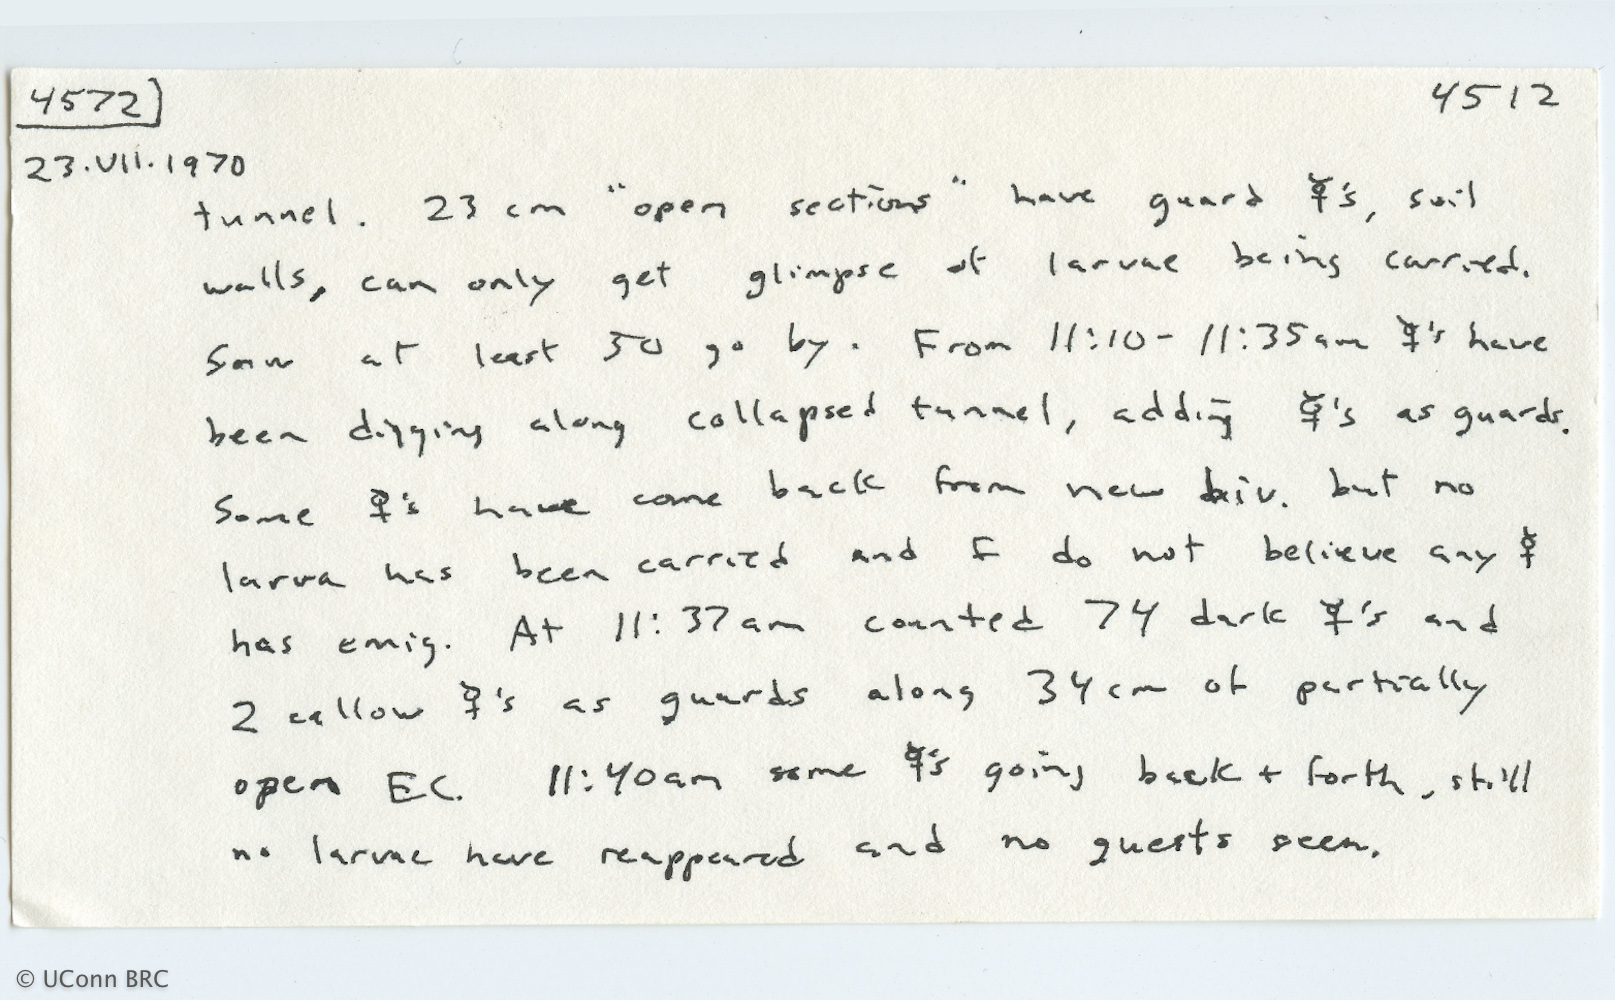 4572
4512
23.VII.1970
tunnel. 23 cm "open sections" have guard ☿'s, soil
walls, can only get glimpse of larvae being carried.
Saw at least 50 go by. From 11:10-11:35am ☿'s have
been digging along collapsed tunnel, adding ☿'s as guards.
Some ☿'s have come back from new biv. but no
larva has been carried and I do not believe any ☿
has emig. At 11:37am counted 74 dark ☿'s and
2 callow ☿'s as guards along 34cm of partially
open EC. 11:40am some ☿'s going back + forth, still
no larvae have reappeared and no guests seen.
© UConn BRC